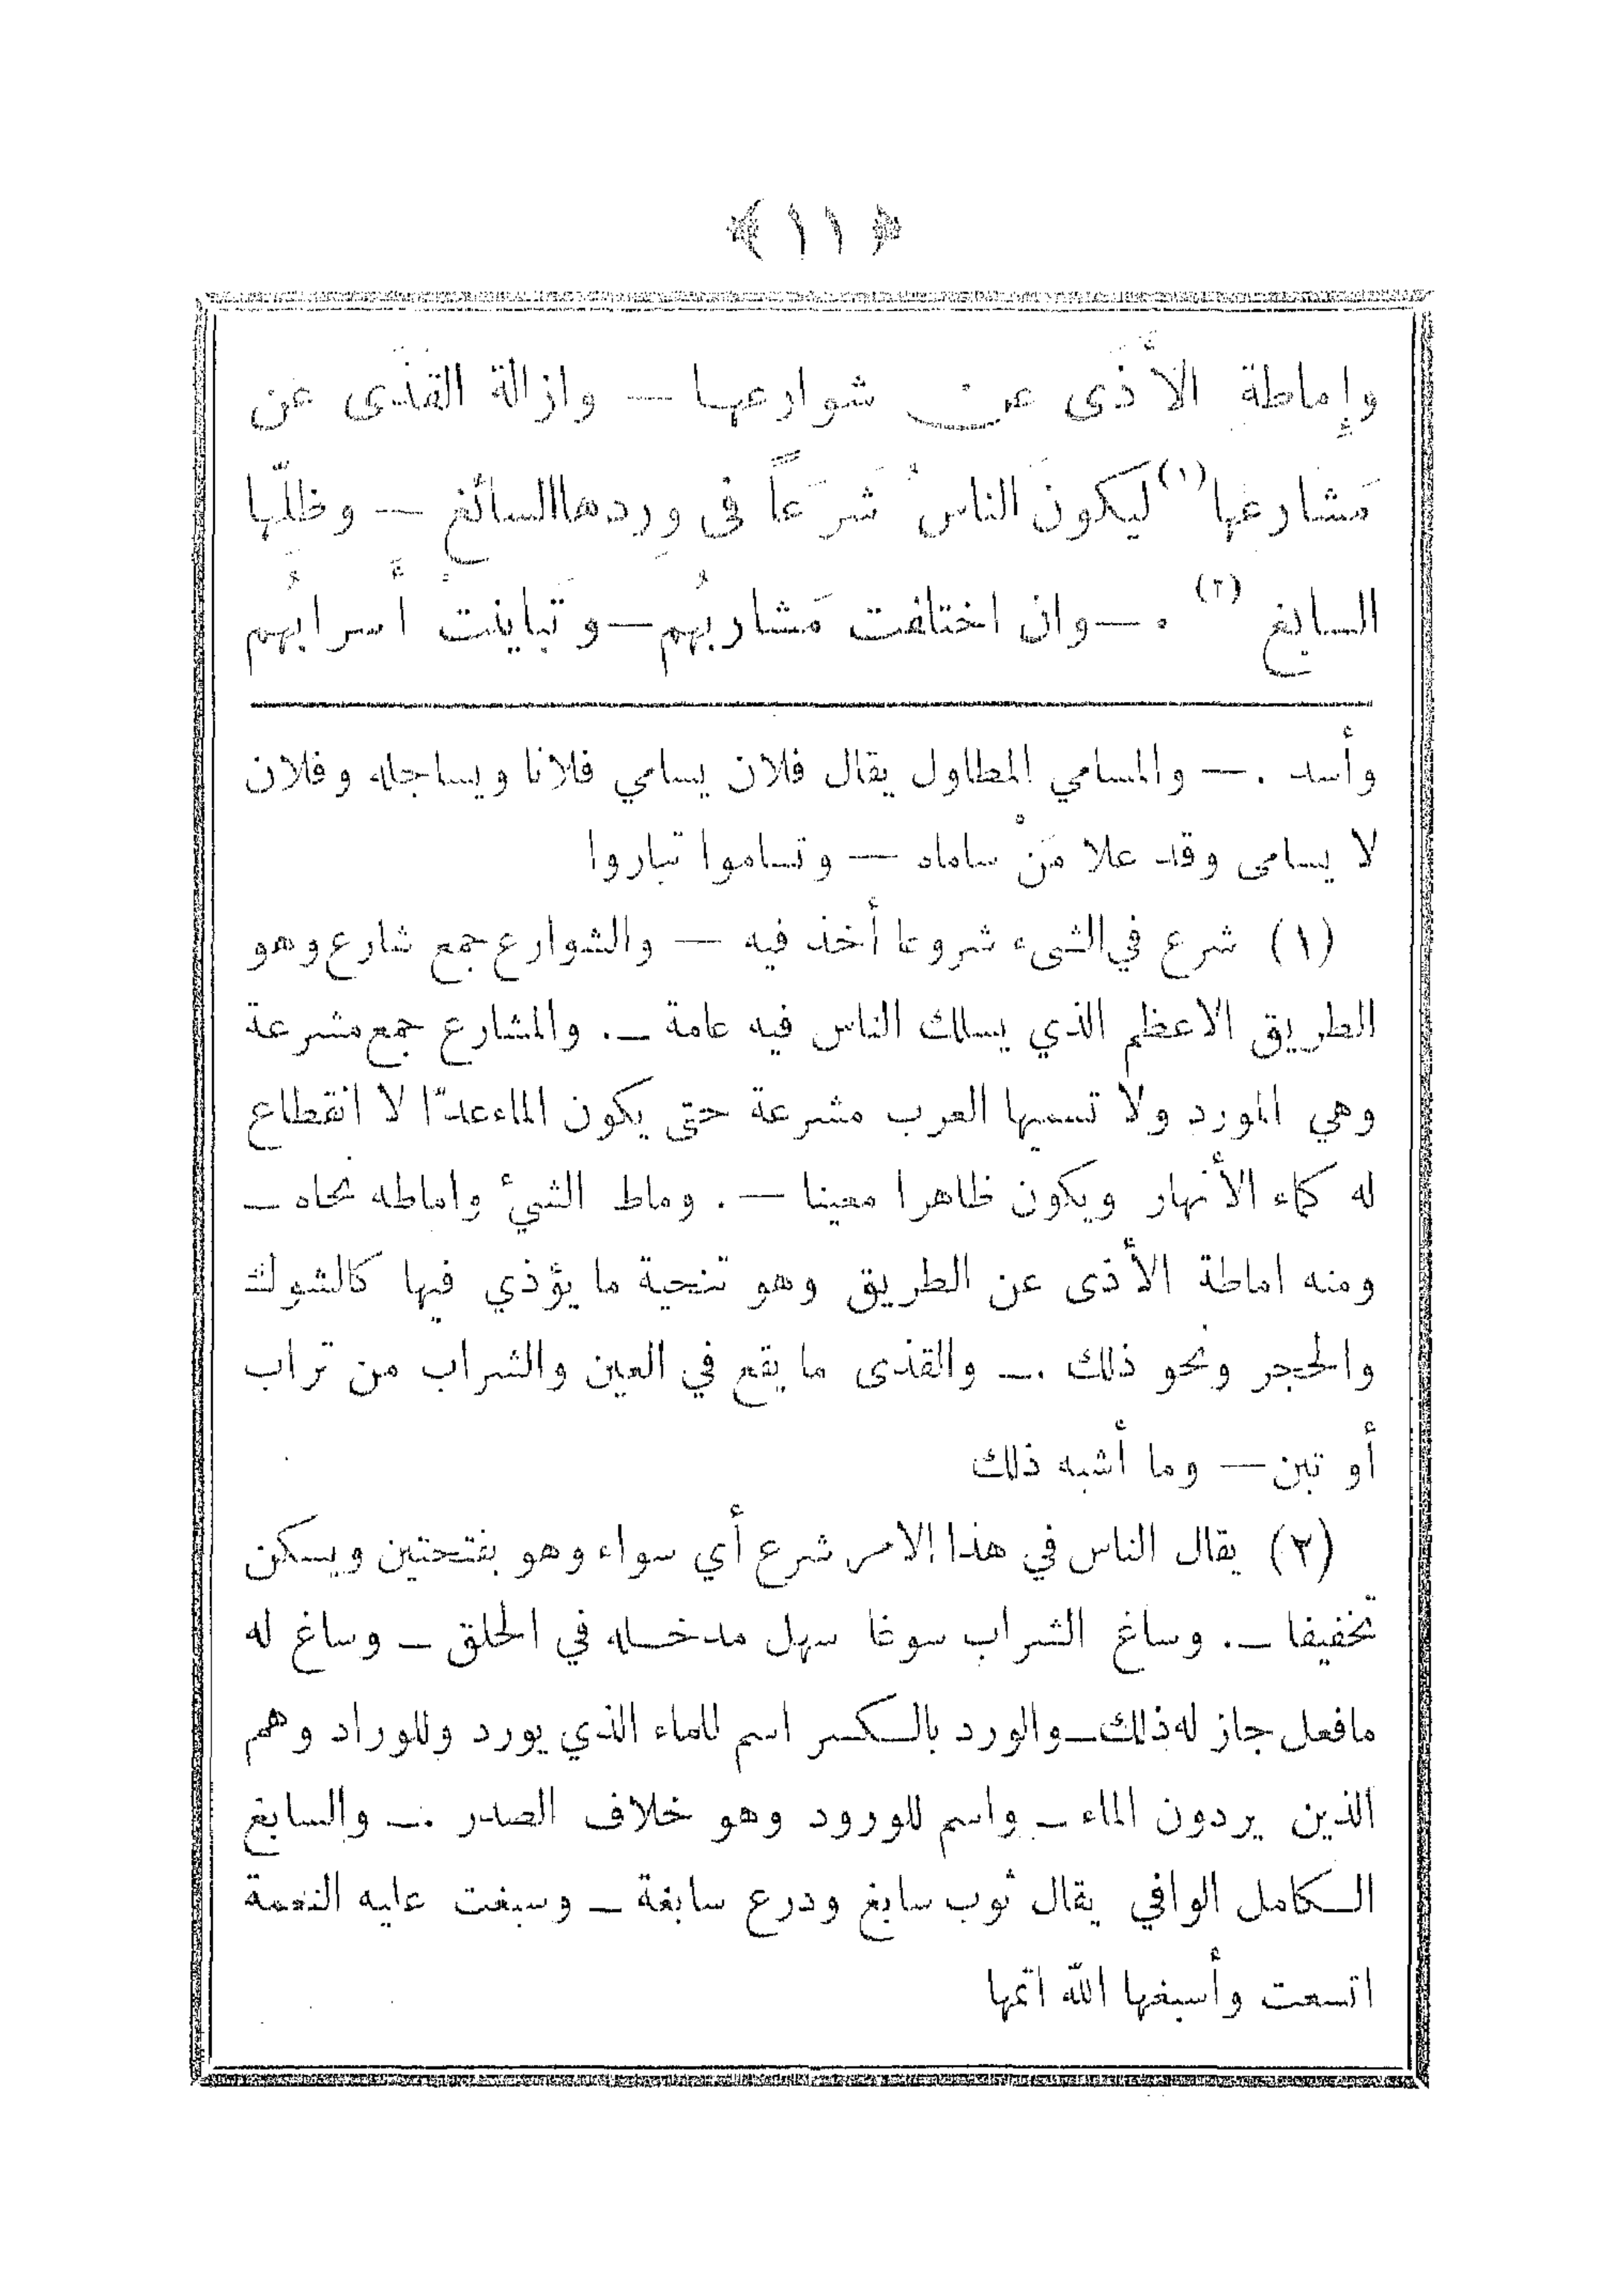 ﴿ ١١ ﴾
وإِماطة الأَذَى عن شوارعها — وازالة القَذَى عن
مَشارعَها(١) ليكونَ الناسُ شَرَعاً فى وِردها السائغ — وظلّها
السابغ (٢) .— وان اختلفت مَشاربُهم — وتَباينتْ أَسرابُهم
وأسد . — والمسامي المطاول يقال فلان يسامي فلانا ويساجله وفلان
لا يسامى وقد علا مَنْ ساماه — وتساموا تباروا
(١) شرع في الشىء شروعا أخذ فيه — والشوارع جمع شارع وهو
الطريق الاعظم الذي يسلك الناس فيه عامة — . والمشارع جمع مشرعة
وهي المورد ولا تسميها العرب مشرعة حتى يكون الماء عدّا لا انقطاع
له كماء الأنهار ويكون ظاهرا معينا — . وماط الشيء واماطه نحاه —
ومنه اماطة الأذى عن الطريق وهو تنحية ما يؤذي فيها كالشوك
والحجر ونحو ذلك . — والقذى ما يقع في العين والشراب من تراب
أو تبن — وما أشبه ذلك
(٢) يقال الناس في هذا الامر شرع أي سواء وهو بفتحتين ويسكن
تخفيفا — . وساغ الشراب سوغا سهل مدخله في الحلق — وساغ له
مافعل جاز له ذلك — والورد بالكسر اسم للماء الذي يورد وللوراد وهم
الذين يردون الماء — واسم للورود وهو خلاف الصدر . — والسابغ
الكامل الوافي يقال ثوب سابغ ودرع سابغة — وسبغت عليه النعمة
اتسعت وأسبغها الله اتمها